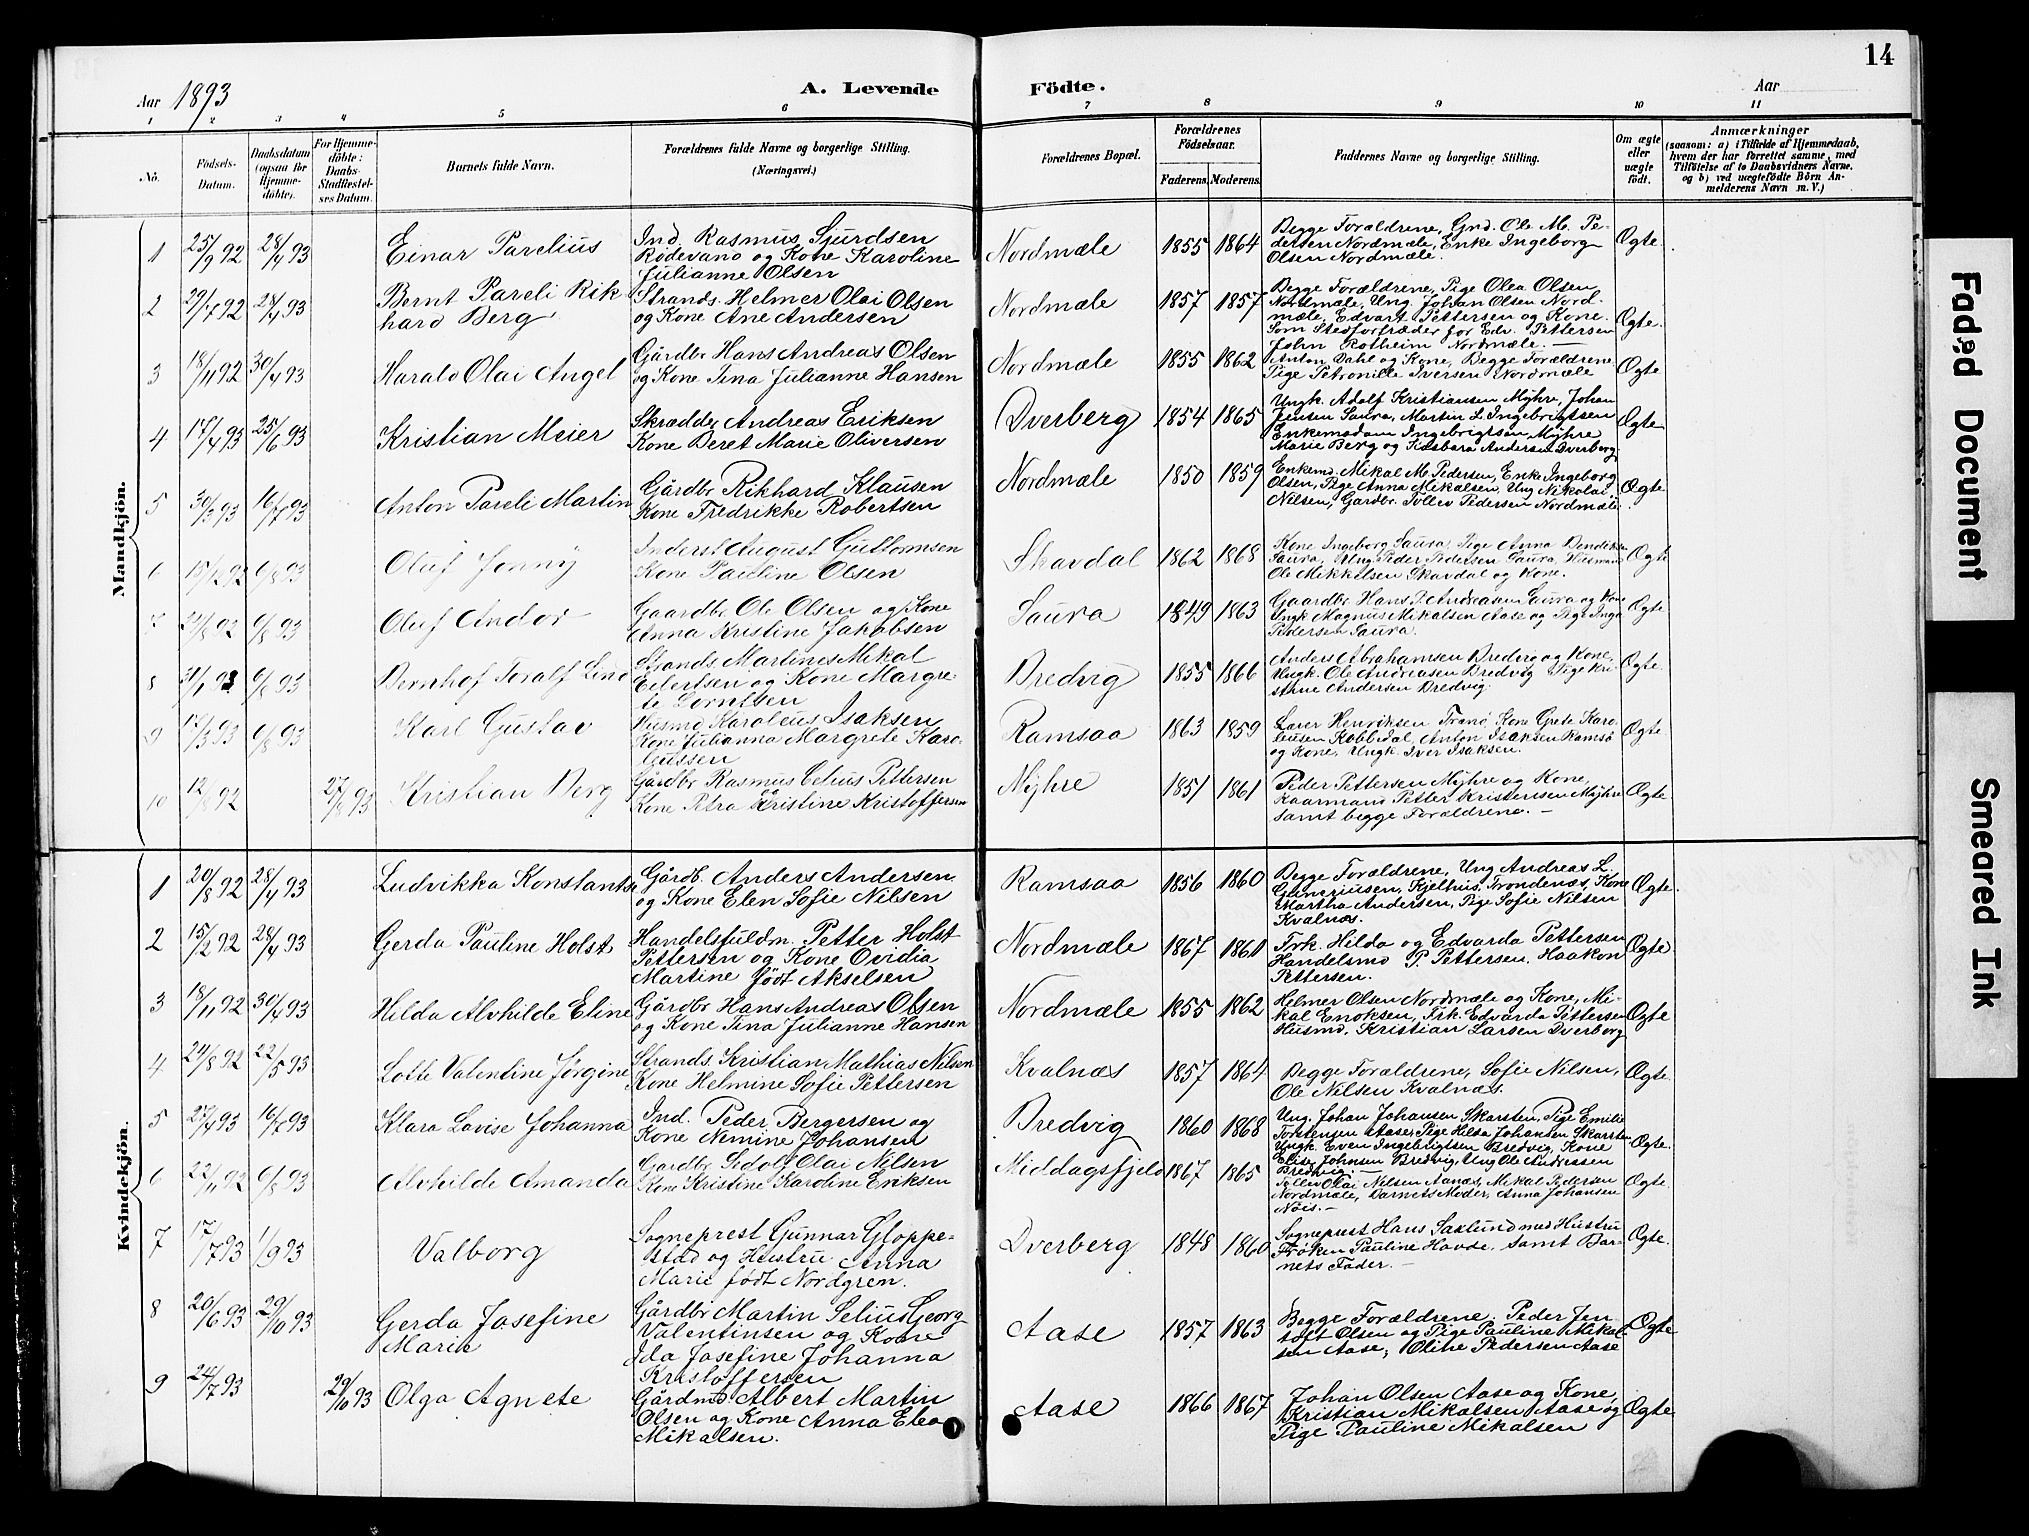 14
Aar 1893
A. Levende Födte.
Aar
1 2 3 4 5 6 7 8 9 10 11
No.
Födsels-Datum.
Daabsdatum (ogsaa for Hjemme-döbte).
For Hjemme-döbte: Daabs-Stadfæstel-ses Datum.
Barnets fulde Navn.
Forældrenes fulde Navne og borgerlige Stilling. (Næringsvei.)
Forældrenes Bopæl.
Forældrenes Födselsaar.
Faderens. Moderens.
Faddernes Navne og borgerlige Stilling.
Om ægte eller uægte födt.
Anmærkninger
(saasom: a) i Tilfælde af Hjemmedaab, hvem der har forrettet samme, med Tilföielse af to Daabsvidners Navne, og b) ved uægtefödte Börn An-melderens Navn m. V.)
Mandkjön.
1 25/9 92 28/4 93 Einar Parelius
Ind. Rasmus Sjurdsen
Rödevand og Kone Karoline
Julianne Olsen
Nordmæle 1855 1864
Begge Forældrene, Gmd. Ole M. Pe-
dersen Nordmæle, Enke Ingeborg
Olsen Nordmæle.
Ægte.
2 29/7 92 28/4 93 Bernt Pareli Rik
hard Berg
Strands. Helmer Olai Olsen
og Kone Ane Andersen
Nordmæle 1857 1857
Begge Forældrene, Pige Olea Olsen
Nordmæle, Ung. Johan Olsen Nord-
mæle, Edvart Pettersen og Kone.
Som Stedfortræder for Edv. Pettersen
John Rotheim Nordmæle. —
Ægte.
3 18/11 92 30/4 93 Harald Olai Angel
Gårdbr Hans Andreas Olsen
og Kone Tina Julianne Hansen
Nordmæle 1855 1862
Anton Dahl og Kone, Begge Forældrene
Pige Petronille Iversen Nordmæle
Ægte
4 17/4 93 25/6 93 Kristian Meier
Skrædder Andreas Eriksen
Kone Beret Marie Oliversen
Dverberg 1854 1865
Ungk. Adolf Kristiansen Myhre, Johan
Jensen Saura, Martin L. Ingebrigtsen
Enkemadam Ingebrigtsen Myhre
Marie Berg og Andersen Dverberg
Ægte
5 30/3 93 16/7 93 Anton Pareli Martin
Gårdbr Rikhard Klausen
Kone Fredrikke Robertsen
Nordmæle 1850 1859
Enkemd. Mikal M. Pedersen, Enke Ingeborg
Olsen, Pige Anna Mikalsen, Ung Nikolai
Nilsen, Gårdbr. Tollev Pedersen Nordmæle.
Ægte
6 15/12 92 6/8 93 Oluf Jonny
Inderst August Guttormsen
Kone Pauline Olsen
Skavdal 1862 1868
Kone Ingeborg Saura, Pige Anna Bendiksen
Saura, Ung. Peder Pedersen Saura,
Ole Mikkelsen Skavdal og Kone.
Ægte
7 6/8 93 Oluf Andor
Gaardbr. Ole Olsen og Kone
Anna Kristine Jakobsen
Saura 1849 1863
Gaardbr. Hans P. Andreasen Saura og Kone
Ungk. Magnus Mikalsen Aase og Pige Inga
Pedersen Saura.
Ægte
8 31/1 93 6/8 93 Bernhof Toralf Lind
Strands Martines Mikal
Eilertsen og Kone Margre-
te Lorntsen
Bredvig 1855 1866
Anders Abrahamsen Bredvig og Kone,
Ungk. Ole Andreasen Bredvig Pige Kri-
stine Andersen Bredvig.
Ægte.
9 12/3 93 6/8 93 Karl Gustav
Husmd Karoleus Isaksen
Kone Julianna Margrete Karo-
leussen
Ramsaa 1863 1859
Henriksen Tranö, Kone Grete Karo-
leusen Kobbedal, Anton Isaksen Ramsö
og Kone, Ungk. Iver Isaksen.
Ægte.
10 12/8 92 27/8 93 Kristian Berg
Gårdbr Rasmus Celius Pettersen
og
Kone Petra Kristine Kristoffersen
Myhre 1851 1861
Peder Pettersen Myhre og Kone,
Kaarmand Petter Kristensen Myhre
samt begge Forældrene. —
Ægte.
Kvindekjön.
1 20/8 92 28/4 93 Ludvikka Konstantse
Gårdb. Anders Andersen
og Kone Elen Sofie Nilsen
Ramsaa 1856 1860
Begge Forældrene, Ung Andreas L.
Guneriusen, Kjelhus, Trondenæs, Kone
Martha Andersen, Pige Sofie Nilsen
Kvalnæs.
Ægte.
2 15/2 92 28/4 93 Gerda Pauline Holst
Handelsfuldm. Petter Holst
Pettersen og Kone Ovidia
Martine født Akselsen
Nordmæle 1867 1860
Frk. Hilda og Edvarda Pettersen
Handelsmd P. Pettersen, Haakon
Pettersen.
Ægte
3 18/11 92 30/4 93 Hilda Alvhilde Eline
Gårdbr Hans Andreas Olsen
og Kone Tina Julianne Hansen
Nordmæle 1855 1862
Helmer Olsen Nordmæle og Kone, Mi-
kal Enoksen, Frk. Edvarda Pettersen
Husmd. Kristian Larsen Dverberg
Ægte
4 24/8 92 22/5 93 Lotte Valentine Jørgine
Strands. Kristian Mathias Nilsen
Kone Helmine Sofie Pettersen
Kvalnæs 1857 1864
Begge Forældrene, Sofie Nilsen,
Ole Nilsen Kvalnæs.
Ægte.
5 27/4 93 16/7 93 Klara Lovise Johanna
Ind. Peder Bergersen og
Kone Nemine Johansen
Bredvig 1860 1868
Ung. Johan Johansen Skarsten, Pige Emilie
Torstensen Aase, Pige Hilda Johansen Skarsten
Ungk. Even Ingebrigtsen Bredvig, Kone
Elise Johnsen Bredvig, Ung Ole Andreasen
Bredvig. —
Ægte.
6 22/11 92 6/8 93 Alvhilde Amanda
Gardbr Sedolf Olai Nilsen
Kone Kristine Karoline Eriksen
Middagsfjeld 1867 1865
Tollev Olai Nilsen Aanæs, Mikal Pedersen
Nordmæle, Barnets Moder, Anna Johansen
Nöis. —
Ægte.
7 17/7 93 1/9 93 Valborg
Sogneprest Gunnar Gloppe-
stad og Hustru Anna
Marie født Nordgren.
Dverberg 1848 1860
Sogneprest Hans Saxlund med Hustru
Frøken Pauline Hovde, samt Bar-
nets Fader. —
Ægte.
8 20/6 93 29/10 93 Gerda Josefine
Marie
Gårdbr Martin Selius Georg
Valentinsen og Kone
Ida Josefine Johanna
Kristoffersen
Aase 1857 1863
Begge Forældrene, Peder Jen-
toft Olsen og Pige Pauline Mikal-
sen Aase, Oline Pedersen Aase
Ægte
9 24/7 93 29/10 93 Olga Agnete
Gårdmd. Albert Martin
Olsen og Kone Anna Elea
Mikalsen.
Aase 1866 1867
Johan Olsen Aase og Kone,
Kristian Mikalsen Aase og
Pige Pauline Mikalsen
Ægte
Faded Document
Smeared Ink